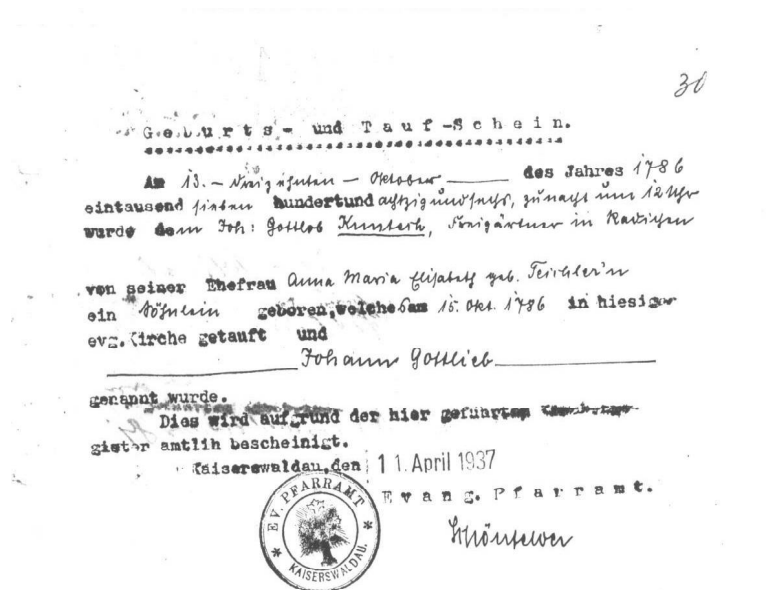 30
Geburts- und Tauf-Schein.
Am 13. - dreizehnten - Oktober des Jahres 1786
eintausend sieben hundertund achtzigundsechs, zu nacht um 12 Uhr
wurde dem Joh: Gottlob, Freigärtner in
von seiner Ehefrau Anna Maria Elisabeth geb.
ein Söhnlein geboren, welches am 15. Okt. 1786 in hiesiger
evg. Kirche getauft und
Johann Gottlieb
genannt wurde.
Dies wird aufgrund der hier geführten
gister amtlih bescheinigt.
Kaiserswaldau, den 11. April 1937
Evang. Pfarramt.
EV. PFARRAMT
KAISERSWALDAU.